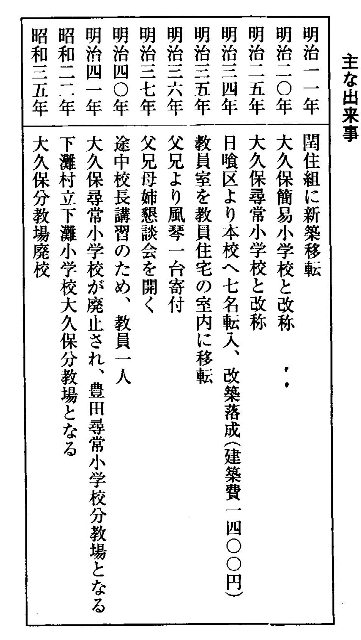 主な出来事
明治一一年 閏住組に新築移転
明治二〇年 大久保簡易小学校と改称
明治二五年 大久保尋常小学校と改称
明治三四年 日喰区より本校へ七名転入、改築落成(建築費一四〇〇円)
明治三五年 教員室を教員住宅の室内に移転
明治三六年 父兄より風琴一台寄付
明治三七年 父兄母姉懇談会を開く
明治四〇年 途中校長講習のため、教員一人
明治四一年 大久保尋常小学校が廃止され、豊田尋常小学校分教場となる
昭和二二年 下灘村立下灘小学校大久保分教場となる
昭和三五年 大久保分教場廃校